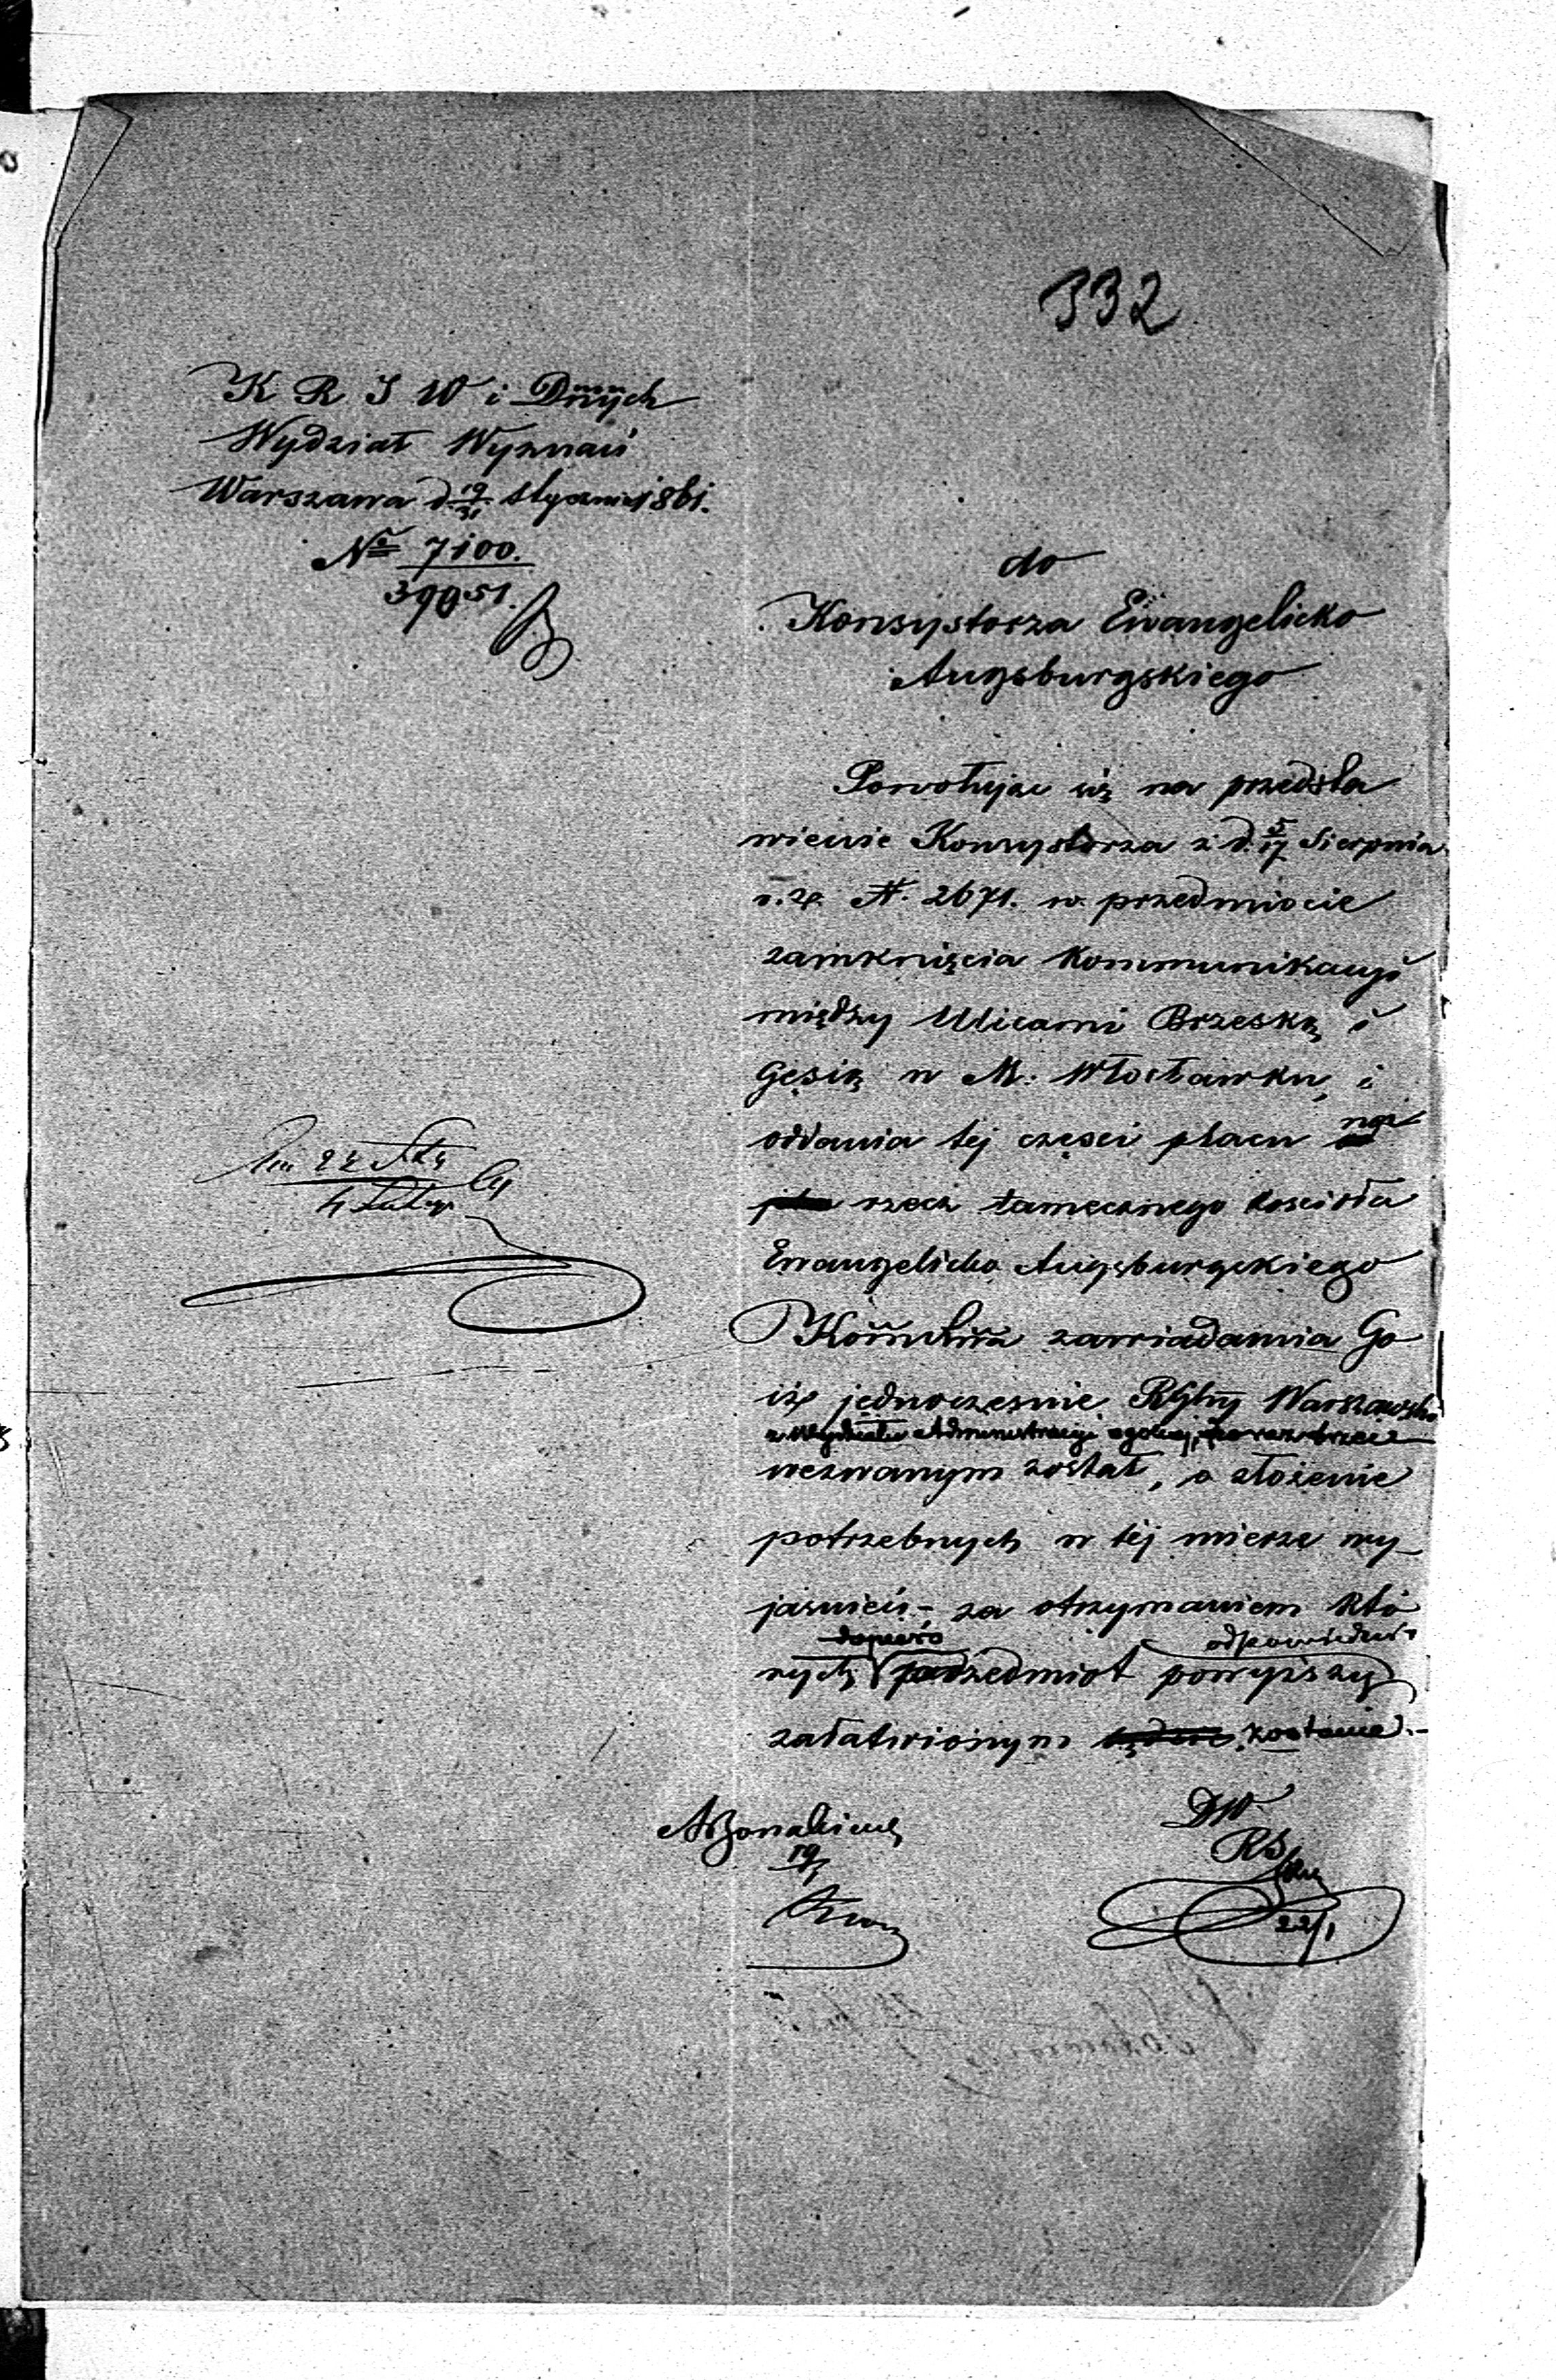 332
K R S W i Dnych
Wydział Wyznań
Warszawa d 19/31 Stycznia 1861.
No 7100.
39051.
do
Konsystorza Ewangelicko
Augsburgskiego
Powołując się na przedsta
wienie Konsystorza z d. 5/17 Sierpnia
r. z. N. 2671. w przedmiocie
zamknięcia Kommunikacyi
między Ulicami Brzeską i
Gęsią w M: Włocławku, i
oddania tej części placu na
rzecz tamecznego kościoła
Ewangelicko Augsburgskiego
zawiadamia Go
iż jednocześnie Warszawski
z Wydziału Administracyi ogólnej,
wezwanym został, o złożenie
potrzebnych w tej mierze wy
jaśnień – za otrzymaniem któ
dopiero odpowiednio
rych przedmiot powyższy
załatwionym będzie zostanie. –
22 4
DW
19/1
22/1